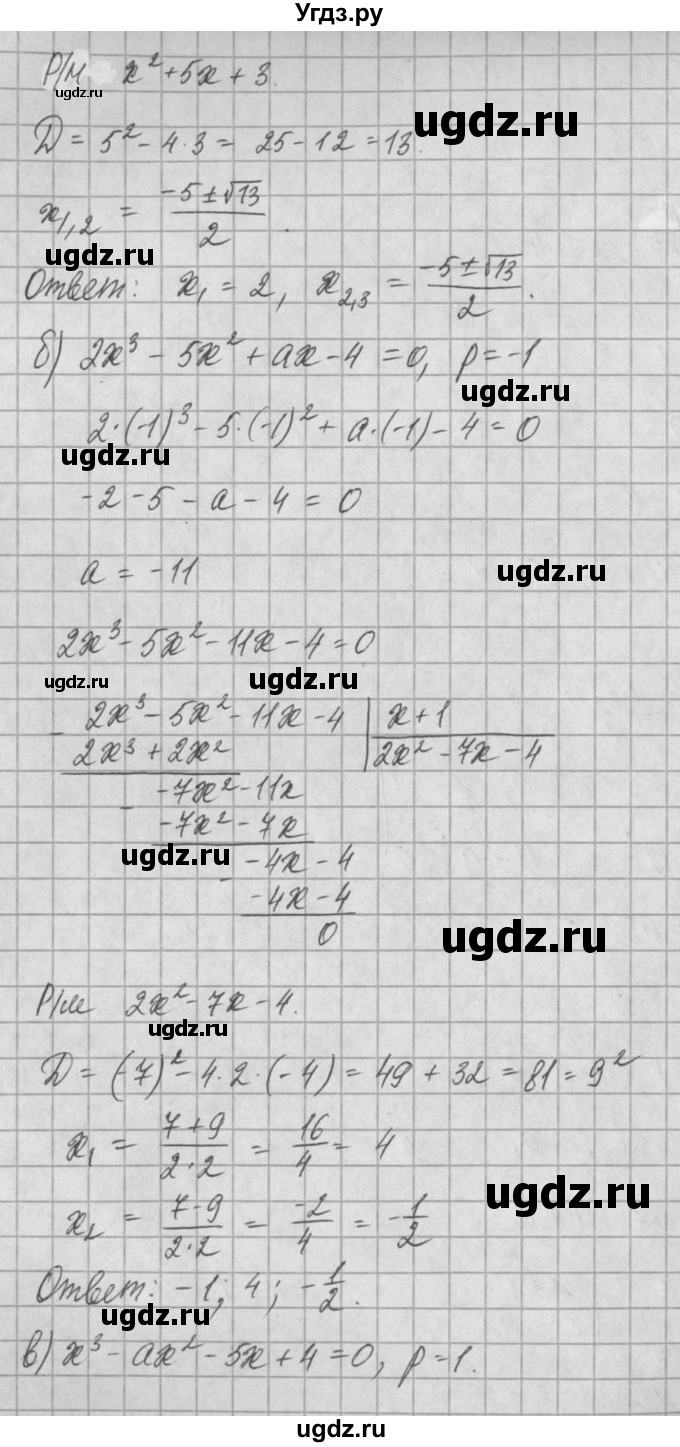 Угдз.ру
Р/м x² + 5x + 3.
ugdz.ru
ugdz.ru
D = 5² - 4·3 = 25 - 12 = 13.
x₁,₂ = (-5 ± √13)/2.
ugdz.ru
ugdz.ru
Ответ: x₁ = 2, x₂,₃ = (-5 ± √13)/2.
б) 2x³ - 5x² + ax - 4 = 0, p = -1
ugdz.ru
2·(-1)³ - 5·(-1)² + a·(-1) - 4 = 0
ugdz.ru
-2 - 5 - a - 4 = 0
a = -11
ugdz.ru
2x³ - 5x² - 11x - 4 = 0
ugdz.ru
ugdz.ru
- 2x³ - 5x² - 11x - 4 | x + 1
2x³ + 2x² | 2x² - 7x - 4
- -7x² - 11x
-7x² - 7x
ugdz.ru
- -4x - 4
-4x - 4
0
ugdz.ru
Р/м 2x² - 7x - 4.
ugdz.ru
D = (-7)² - 4·2·(-4) = 49 + 32 = 81 = 9²
x₁ = (7+9)/(2·2) = 16/4 = 4
ugdz.ru
x₂ = (7-9)/(2·2) = -2/4 = -1/2
Ответ: -1; 4; -1/2.
ugdz.ru
в) x³ - ax² - 5x + 4 = 0, p = 1.
ugdz.ru